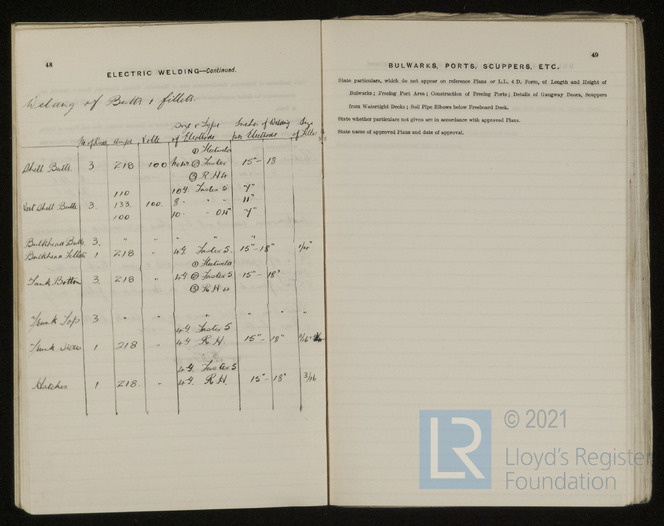 48
ELECTRIC WELDING—Continued.
Welding of Butts & fillets
No of Runs Amps Volts Size & Type of Electrode Inches of Welding per Electrode Size of Fillet
Shell Butts 3 218 100 15"- 18
R.H.
110 10 g.
Vert Shell Butts 3. 133 100 8 " " 11"
100 10
Bulkhead Butts 3. " " " "
Bulkhead Fillets 1 218 " 4 g. 15"-18"
Tank Bottom 3 218 " 4 g. 15"-18"
R.H.
Trunk Tops 3 " " " "
4 g.
Trunk Sides 1 218 " 4 g. R.H. 15"-18"
4 g.
Hatches 1 218 " 4 g. R.H. 15"-18" 3/16
49
BULWARKS, PORTS, SCUPPERS, ETC.
State particulars, which do not appear on reference Plans or L.L. 4 D. Form, of Length and Height of
Bulwarks; Freeing Port Area; Construction of Freeing Ports; Details of Gangway Doors, Scuppers
from Watertight Decks; Soil Pipe Elbows below Freeboard Deck.
State whether particulars not given are in accordance with approved Plans.
State name of approval Plans and date of approval.
LR © 2021
Lloyd's Register
Foundation